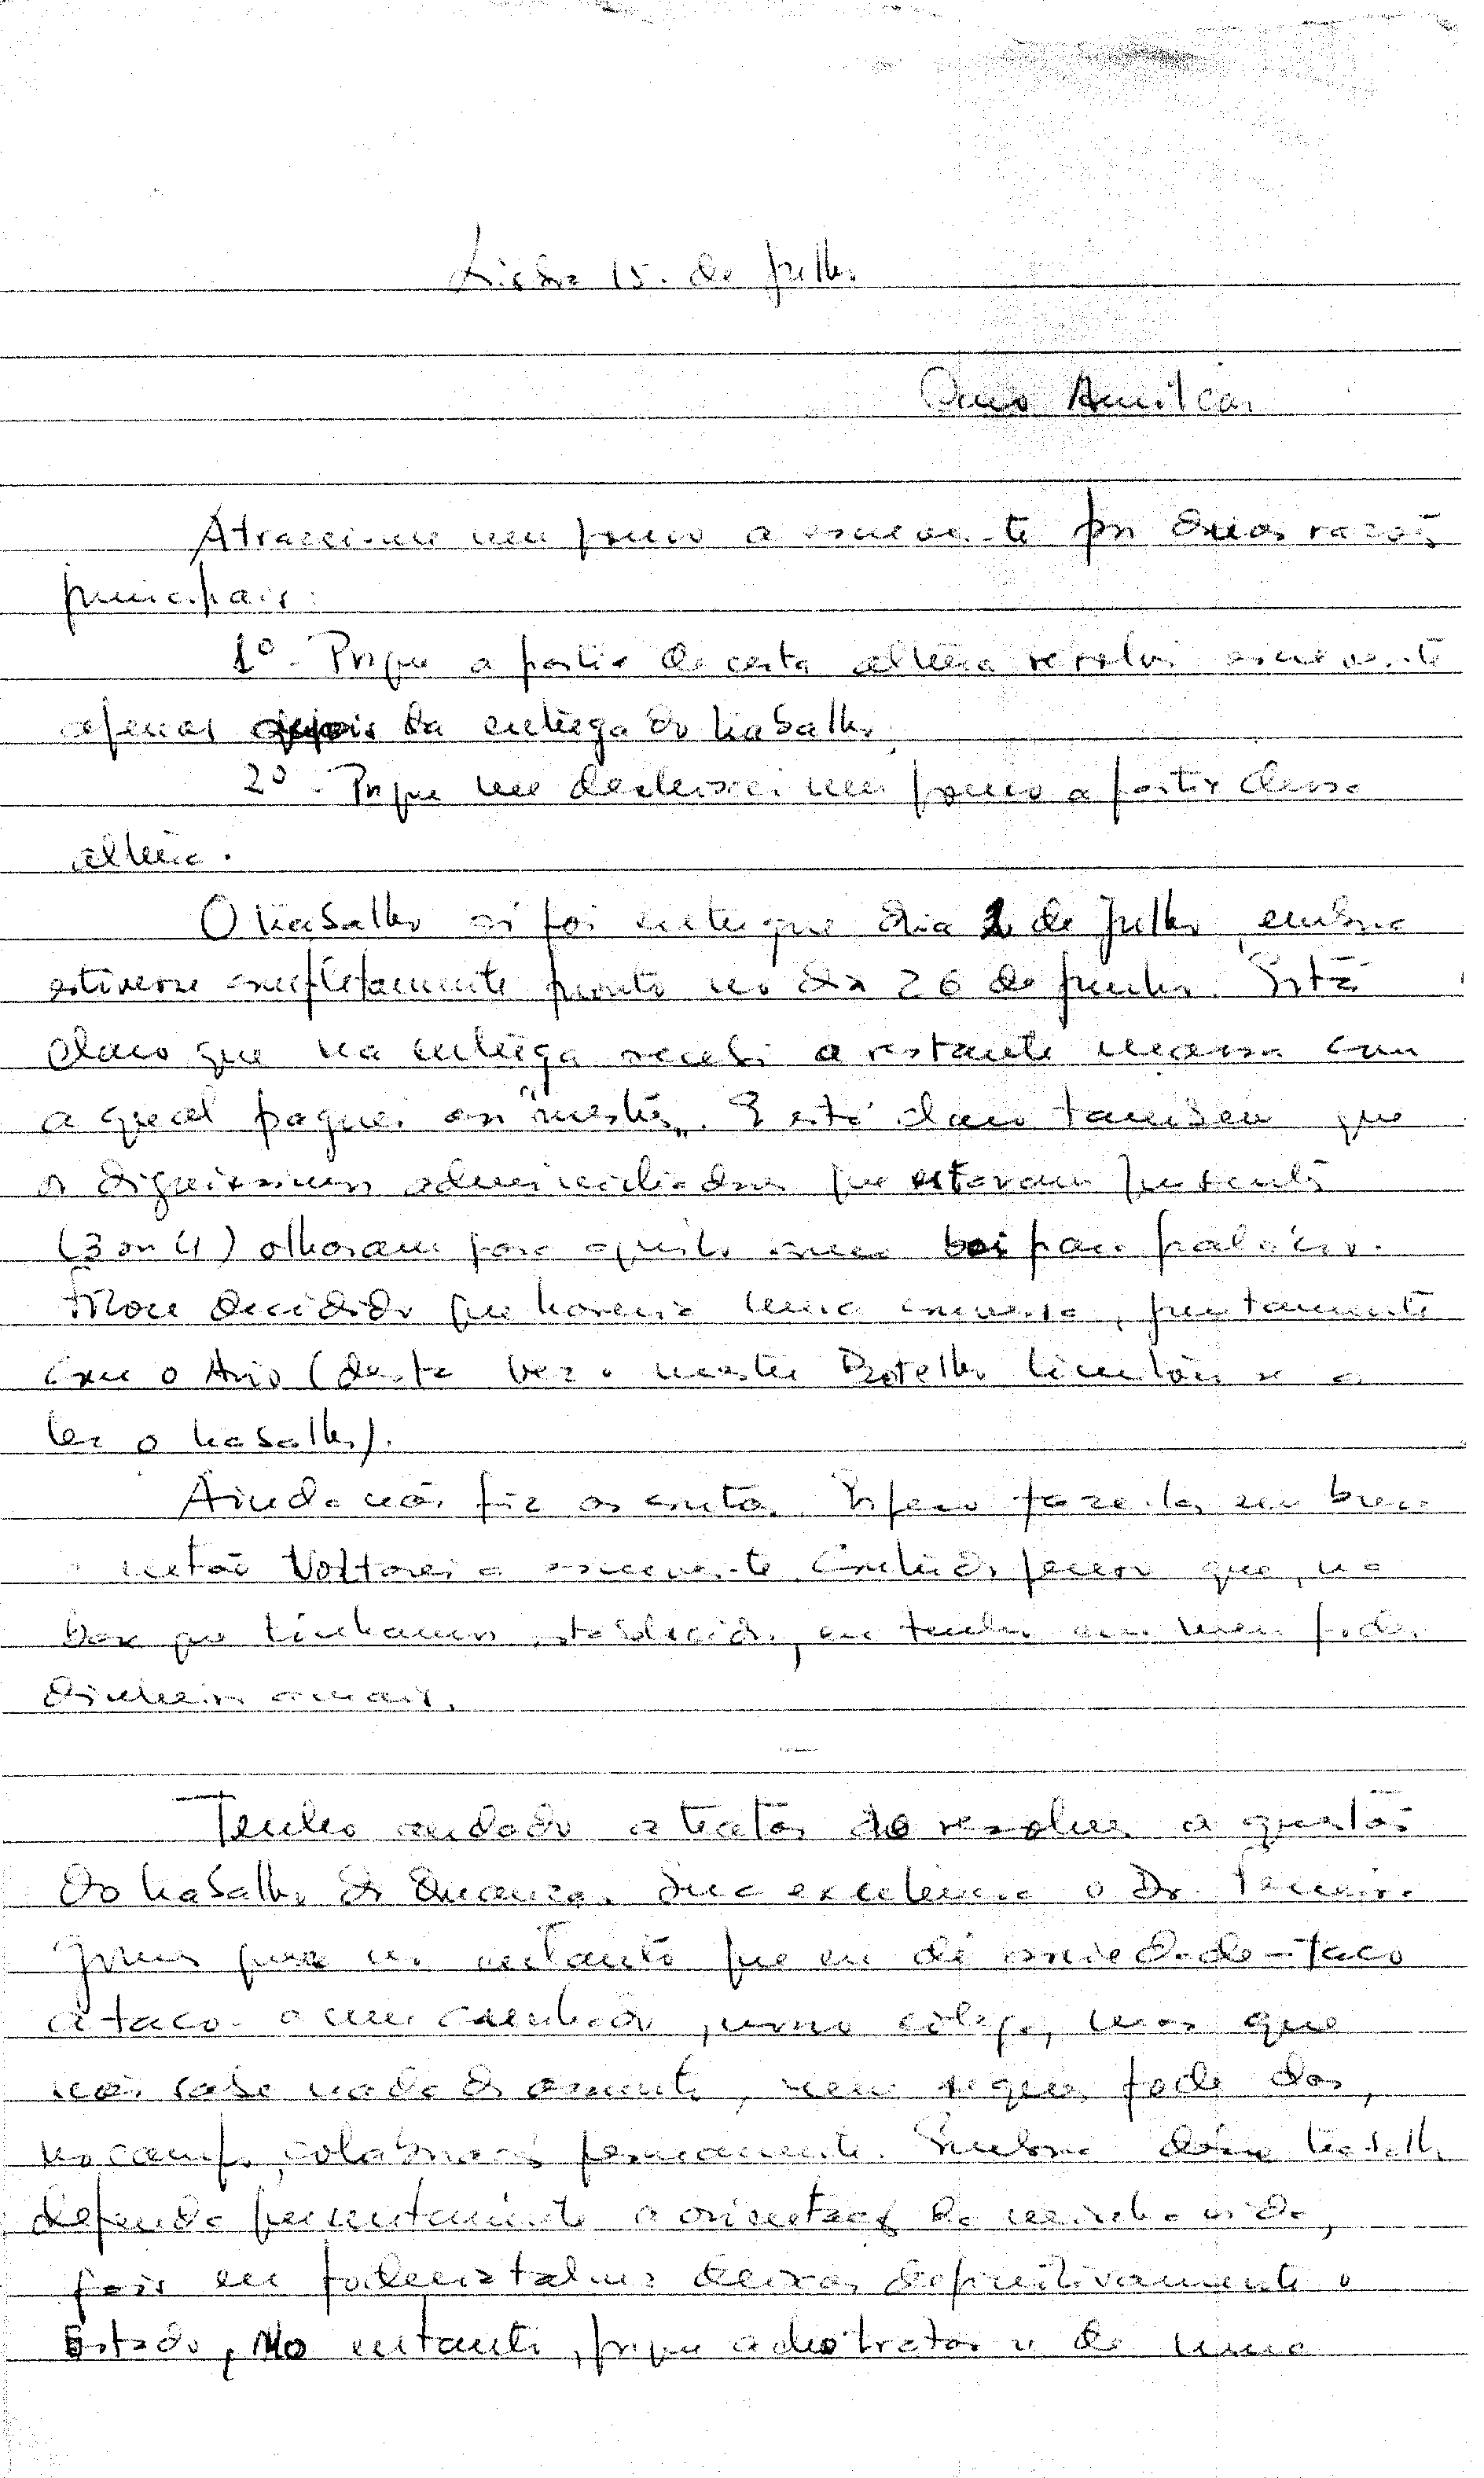 Lisboa 15. de Julho
Caro Amilcar
Atrasei-me um pouco a escrever-te por duas razões
principais:
1º - Porque a partir de certa altura resolvi escrever-te
apenas depois da entrega do trabalho.
2º - Porque me desleixei um pouco a partir dessa
altura.
O trabalho só foi entregue dia 2 de Julho, embora
estivesse completamente pronto no dia 26 de Junho. Está
claro que na entrega recebi a restante massa com
a qual paguei aos "mestres". E está claro também que
os digníssimos administradores que estavam presentes
(3 ou 4) olharam para aquilo como boi para palácio.
Ficou decidido que haveria uma conversa, juntamente
com o Ário (desta vez o mestre Botelho limitou-se a
ler o trabalho).
Ainda não fiz as contas. Espero fazê-las em breve
e então voltarei a escrever-te. Contudo penso que, na
base que tinhamos estabelecido, eu tenho em meu poder
dinheiro a mais.
Tenho andado a tratar de resolver a questão
do trabalho do Quanza. Sua excelência o Dr. Ferreira
Gomes quer no entanto que eu dê sociedade - taco
a taco - a um cunhado, nosso colega, mas que
não sabe nada do assunto, nem sequer pode dar,
no campo, colaboração permanente. Embora desse trabalho
dependa a orientação da minha vida,
pois eu poderia talvez deixar definitivamente o
Estado, no entanto, porque acho tratar-se de uma